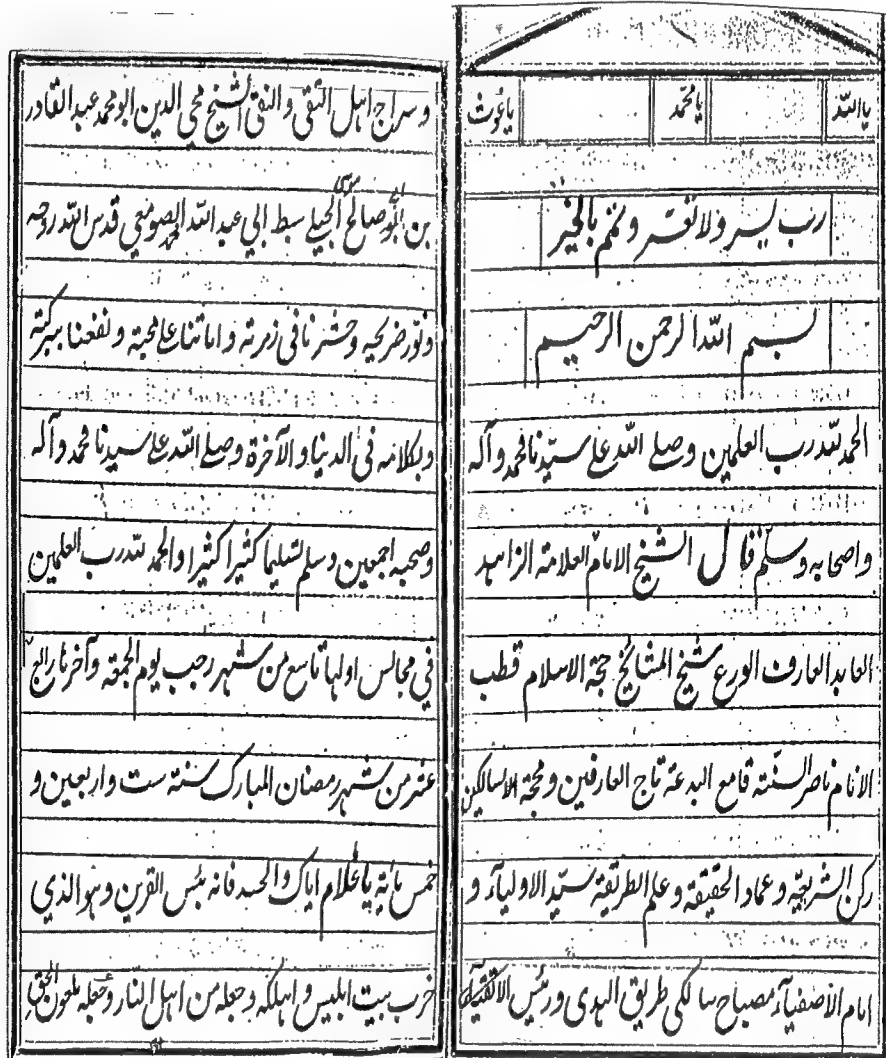 يا الله يا محمد يا غوث
رب يسر ولا تعسر وتمم بالخير
بسم الله الرحمن الرحيم
الحمد لله رب العلمين وصلے الله علے سيّدنا محمد وآله
واصحابه وسلّم قال الشيخ الامام العلامة الزاهد
العابد العارف الورع شيخ المشائخ حجة الاسلام قطب
الانام ناصر السنّته قامع البدعة تاج العارفين ومحجة السالكين
ركن الشريعيّة وعماد الحقيقة وعلم الطريقية سيّد الاولياء و
امام الاصفيآء مصباح سالكى طريق الهدى ورئيس الاتقيآء
وسراج اهل التقى والنقى الشيخ محي الدين ابو محمد عبد القادر
بن ابو صالح الجيلے سبط ابي عبد الله الصومعي قدس الله روحه
ونوّر ضريحيه وحشرنا فى زمرته واماتنا علے محبته ونفعنا ببركته
وبكلامه فى الدنيا والآخرة وصلے الله علے سيدنا محمد وآله
وصحبه اجمعين وسلم تسليما كثيرا كثيرا والحمد لله رب العلمين
في مجالس اولها تاسع من شهر رجب يوم الجمعة وآخرها رابع
عشر من شهر رمضان المبارك سنة ست واربعين و
خمس مائة يا غلام اياك والحسد فانه بئس القرين وهو الذي
خرب بيت ابليس واهلكه وجعله من اهل النار وجعله ملعون الحق